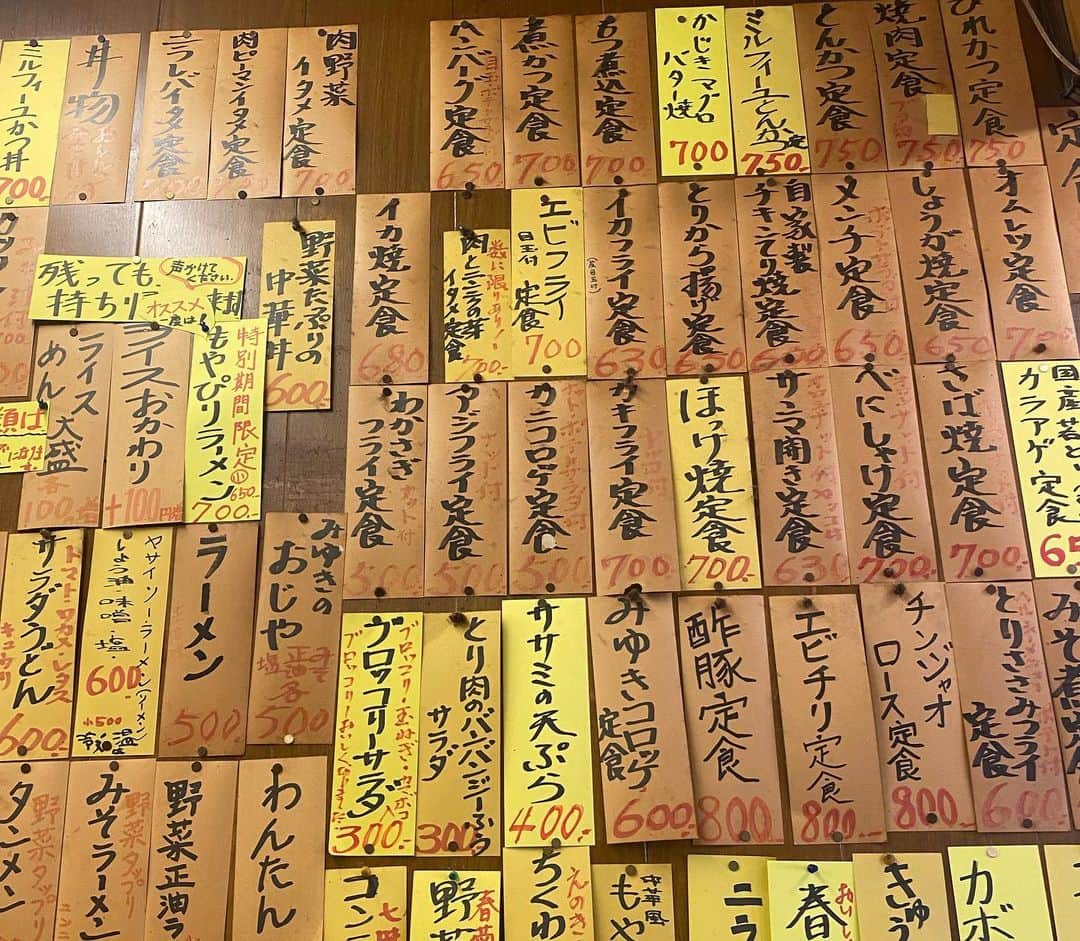 ひれかつ定食
750
焼肉定食
750
とんかつ定食
750
ミルフィーユとんかつ定
750.
かじきマグロ
バター焼
700
もつ煮込定食
700
煮かつ定食
700
ハンバーグ定食
650
肉野菜
イタメ定食
700
肉ピーマンイタメ定食
ニラレバイタメ定食
丼物
ミルフィーユかつ丼
700.
オムレツ定食
700
しょうが焼定食
650
メンチ定食
650
自家製
チキンてり焼定食
600
とりから揚げ定食
650
イカフライ定食
630
エビフライ
目玉付
定食
700
数に限りあり!
肉とニンニクの芽
イタメ定食
700.
イカ焼定食
680
野菜たっぷりの
中華丼
600
残っても、
声かけて
ください。
持ち帰り
オススメ
国産若どり
カラアゲ定食
65
さば焼定食
700
べにしゃけ定食
700
サンマ開き定食
630
ほっけ焼定食
700.
カキフライ定食
700
カニコロッケ定食
500
アジフライ定食
500
わかさぎ
フライ定食
500
特別期間限定
小650
もやぴりラーメン
700.
ライスおかわり
+100円増
ライス
めん
大盛
各100増
みそ煮
とりささみフライ
定食
600
チンジャオ
ロース定食
800
エビチリ定食
800
酢豚定食
800
みゆきコロッケ
定食
600
ササミの天ぷら
400.
とり肉のバンバンジーふう
サラダ
300
ブロッコリーサラダ
ブロッコリー・玉ねぎ・
300.
みゆきの
おじや
500
ラーメン
500
ヤサイソーラーメン(ソーメン)
しょう油・味噌・塩・
600
小500
サラダうどん
トマト・ワカメ・レタス
キュウリ
600
わんたん
野菜正油ラ
みそラーメン
野菜タップリ
タンメン
野菜タップリ
カボ
きゅう
春
ニラ
中華風
もや
ちくわ
えのき
野菜
コン
七味